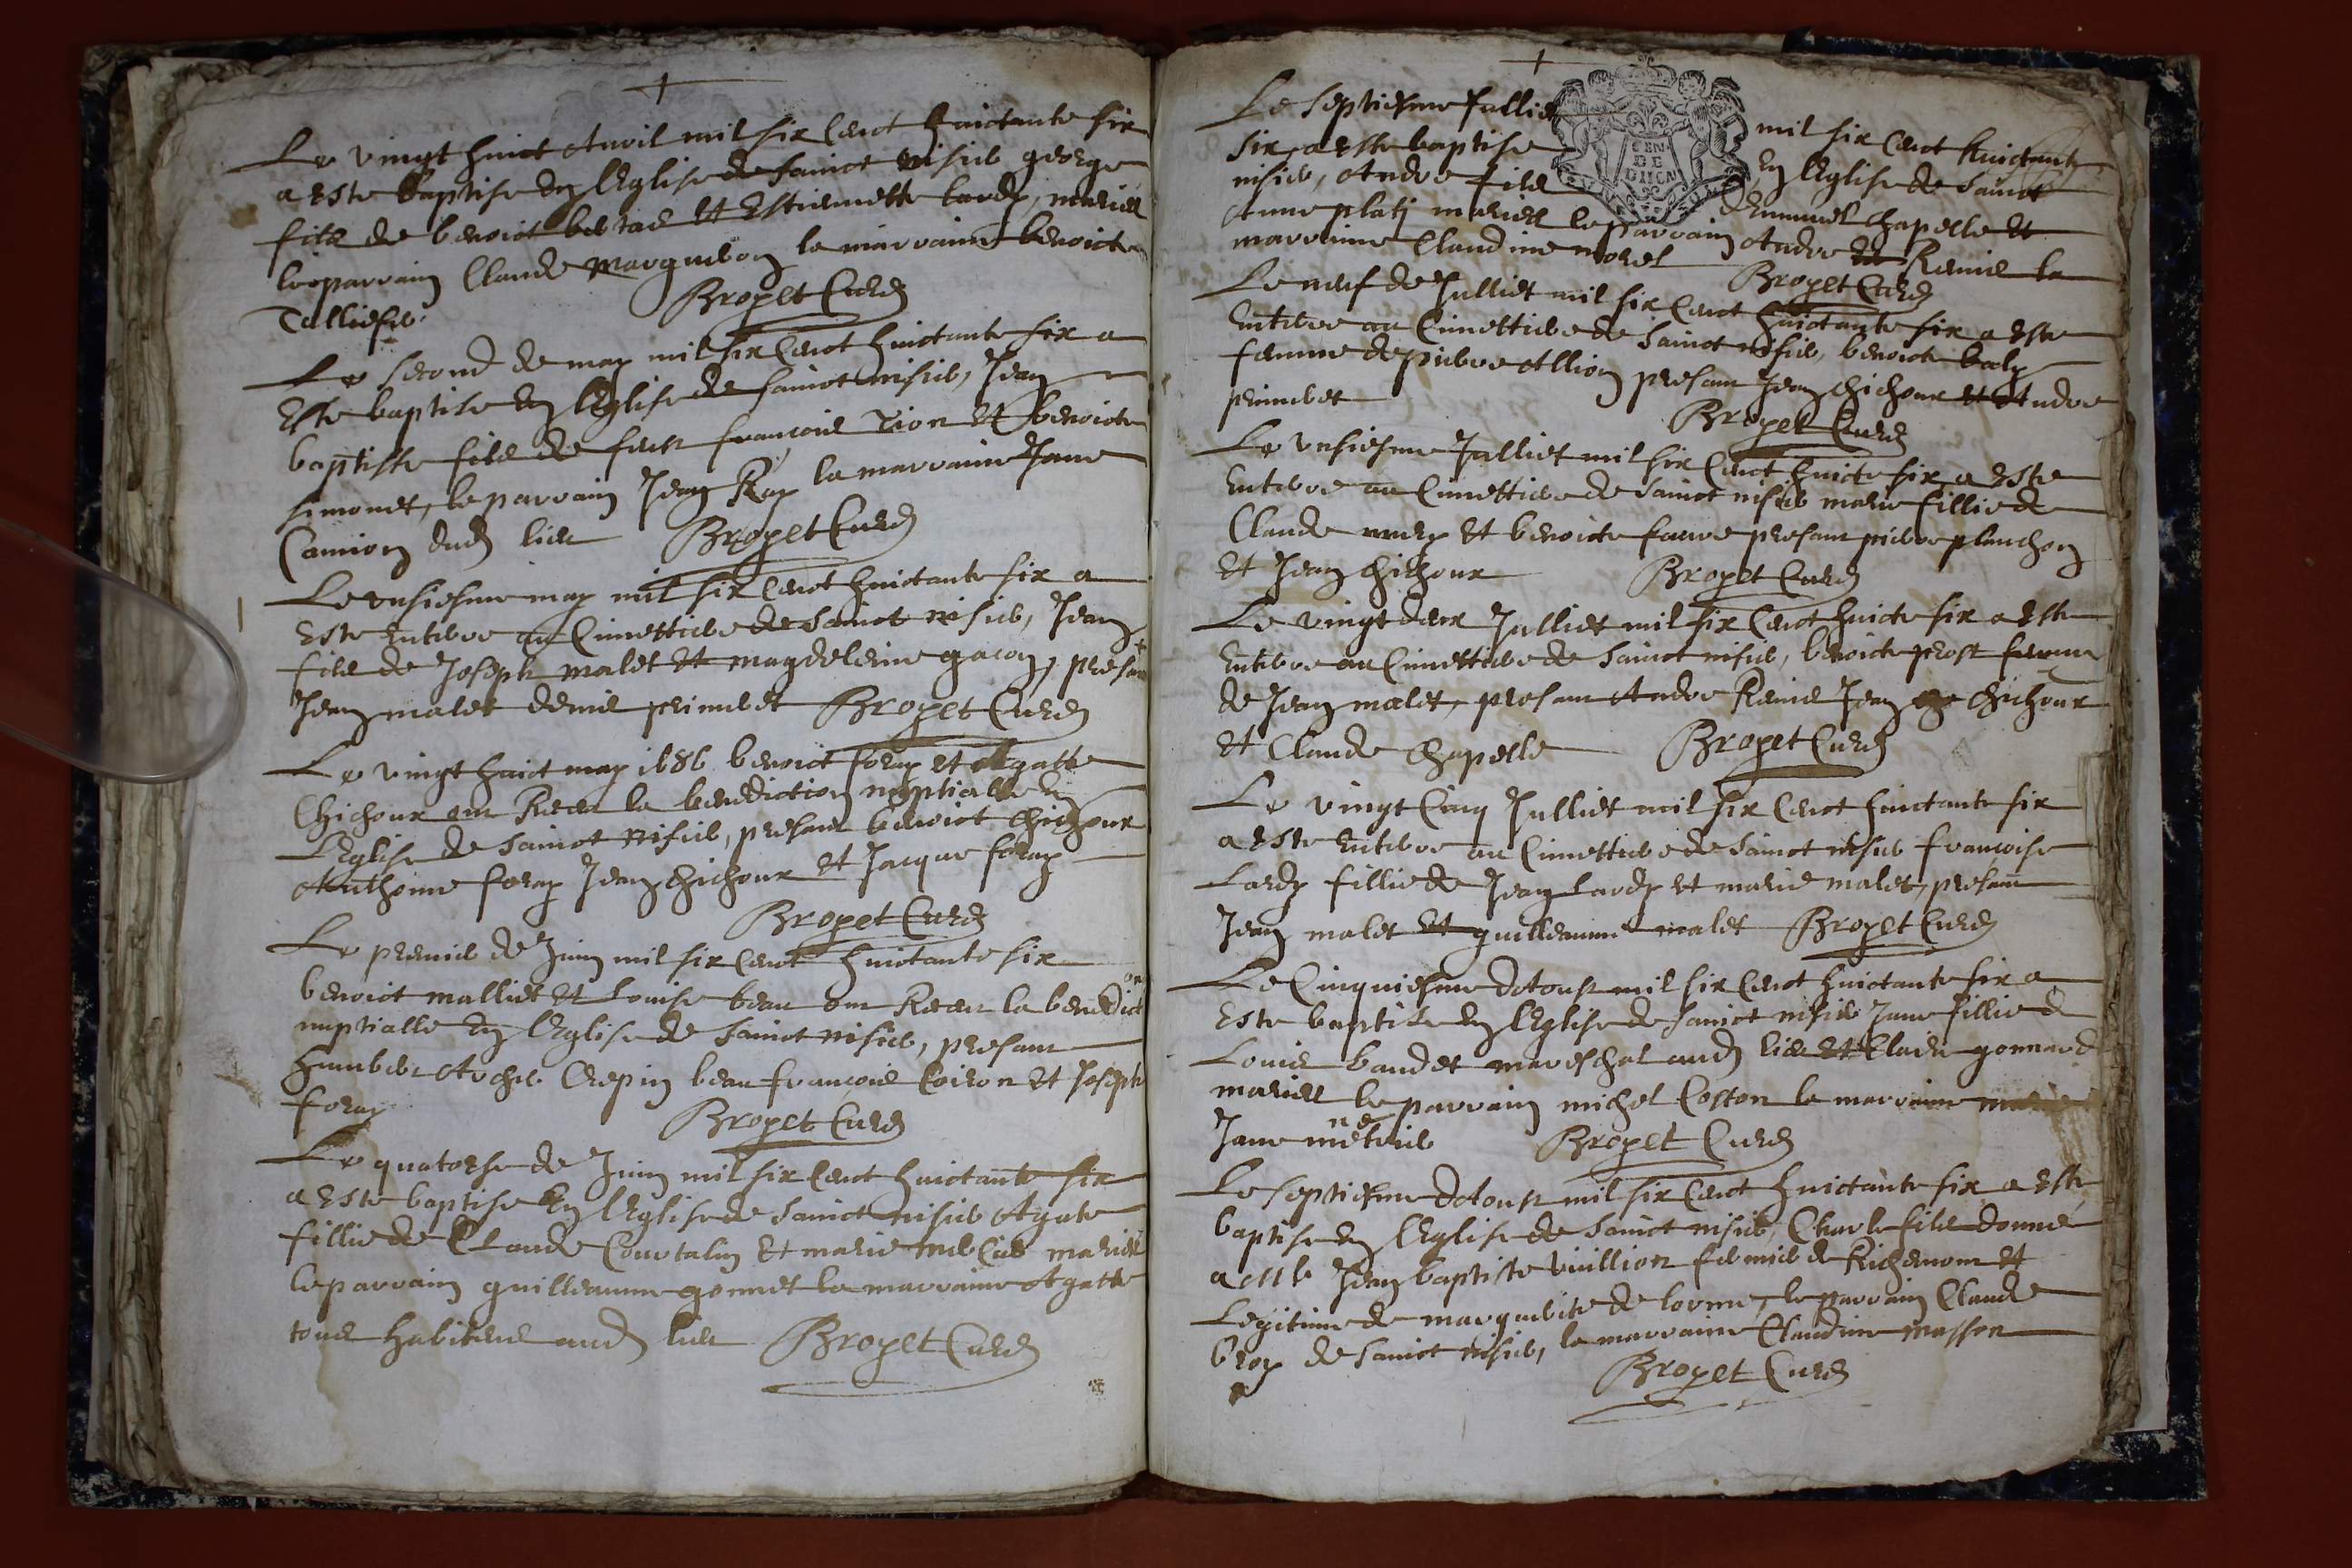 Le vingt huict Avril mil six cent huictante six
a este baptise en l'Eglise de Sainct nisier george
fils de benoict et Estiennette lardy, mariés
le parrain Claude margueron la marraine benoicte
Broyet Curé
Le second de may mil six cent huictante six a
este baptise en l'Eglise de sainct nisier, Jean
baptiste fils de feux françois Tion et benoicte
simonet, le parrain Jean Ray la marraine Jane
Camion dud lieu Broyet Curé
Le unsiesme may mil six cent huictante six a
este enterre au Cimettiere de Sainct nisier, Jean
fils de Joseph malet et magdeleine gacon, presant
Jean malet denis Broyet Curé
Le vingt huict may 1686 benoict foray et Agatte
Chichoux ont Receu la benediction nuptialle en
L'Eglise de Sainct nisier, presant benoict chichoux
Anthoine foray Jean chichoux et Jacque foray
Broyet Curé
Le premier de Juin mil six cent huictante six
benoict malliet et Louise beau ont Receu la benediction
nuptialle en l'Eglise de Sainct nisier, presant
humbert Archer Crepin beau françois Coiron et Joseph
foray Broyet Curé
Le quatorse de Juin mil six cent huictante six
a este baptise en l'Eglise de Sainct nisier Agate
fillie de Claude Courtalin et marie mercier mariés
le parrain guilleaume gonnet la marraine Agatte
tous habitens aud lieu Broyet Curé
Le septiesme Julliet mil six cent huictante
six a este baptise en l'Eglise de Sainct
nisier, Andre fils d'Emmuel Chapelle et
Anne platj mariés le parrain Andre Remis la
marraine Claudine morel Broyet Curé
Le neuf de Julliet mil six cent huictante six a este
enterre au Cimettiere de Sainct nisier, benoicte
femme de pierre Allion presant Jean chichoux et Andre
Broyet Curé
Le unsiesme Julliet mil six cent huicte six a este
enterre au Cimettiere de Sainct nisier marie fillie de
Claude et benoicte faure presant pierre planchon
et Jean chichoux Broyet Curé
Le vingt deux Julliet mil six cent huicte six a este
enterre au Cimettiere de Sainct nisier, benoicte prost femme
de Jean malet, presant Andre Remis Jean chichoux
et Claude Chapelle Broyet Curé
Le vingt Cinq Julliet mil six cent huictante six
a este enterre au Cimettiere de Sainct nisier françoise
Lardy fillie de Jean Lardy et marie malet, presant
Jean malet et guilleaume malet Broyet Curé
Le Cinquiesme d'Aoust mil six cent huictante six a
este baptise en l'Eglise de Sainct nisier Jane fillie de
Louis baudet mareschal aud lieu et Claude gonnard
mariés le parrain michel Coston la marraine
Jane Broyet Curé
Le septiesme d'Aoust mil six cent huictante six a este
baptise en l'Eglise de Sainct nisier, Charle fils donné
a Jean baptiste vuillion fermier de Richemont et
Legitime de marguerite de lorme, le parrain Claude
broy de Sainct nisier, la marraine Claudine masson
Broyet Curé